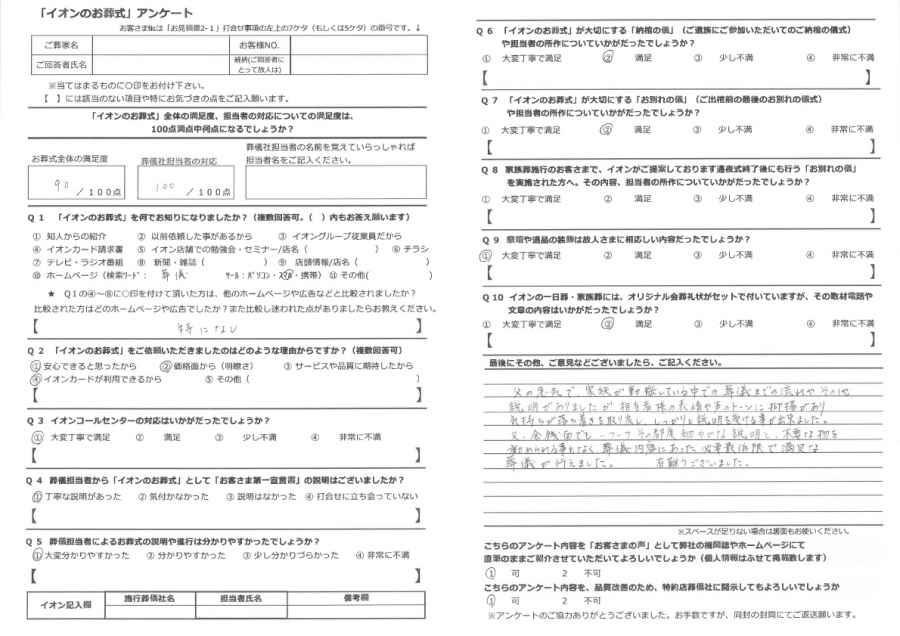 「イオンのお葬式」アンケート
お客さまNo.は「お見積書2-1」打合せ事項の左上の7ケタ（もしくは5ケタ）の番号です。↓
ご葬家名
お客様NO.
ご回答者氏名
続柄(ご回答者にとって故人は)
※当てはまるものに○印をお付け下さい。
【　】には該当のない項目や特にお気づきの点をご記入願います。
「イオンのお葬式」全体の満足度、担当者の対応についての満足度は、
100点満点中何点になるでしょうか？
お葬式全体の満足度
葬儀社担当者の対応
葬儀社担当者の名前を覚えていらっしゃれば
担当者名をご記入ください。
90 ／100点
100 ／100点
Q 1 「イオンのお葬式」を何でお知りになりましたか？（複数回答可。(　) 内もお答え願います）
① 知人からの紹介 ② 以前依頼した事があるから ③ イオングループ従業員だから
④ イオンカード請求書 ⑤ イオン店舗での勉強会・セミナー/店名（　） ⑥ チラシ
⑦ テレビ・ラジオ番組 ⑧ 新聞・雑誌（　） ⑨ 店頭情報/店名（　）
⑩ ホームページ（検索ワード： 葬儀 ツール：パソコン・スマホ・携帯） ⑪ その他(　)
★ Q1の④～⑧に○印を付けて頂いた方は、他のホームページや広告などと比較されましたか？
比較された方はどのホームページや広告でしたか？また比較し迷われた点がありましたらお教えください。
【 特になし 】
Q 2 「イオンのお葬式」をご依頼いただきましたのはどのような理由からですか？（複数回答可）
① 安心できると思ったから ② 価格面から（明瞭さ） ③ サービスや品質に期待したから
④ イオンカードが利用できるから ⑤ その他（　）
【　】
Q 3 イオンコールセンターの対応はいかがだったでしょうか？
① 大変丁寧で満足 ② 満足 ③ 少し不満 ④ 非常に不満
【　】
Q 4 葬儀担当者から「イオンのお葬式」として「お客さま第一宣言書」の説明はございましたか？
① 丁寧な説明があった ② 気付かなかった ③ 説明はなかった ④ 打合せに立ち会っていない
【　】
Q 5 葬儀担当者によるお葬式の説明や進行は分かりやすかったでしょうか？
① 大変分かりやすかった ② 分かりやすかった ③ 少し分かりづらかった ④ 非常に不満
【　】
イオン記入欄 施行葬儀社名 担当者氏名 備考欄
Q 6 「イオンのお葬式」が大切にする「納棺の儀」（ご遺族にご参加いただいてのご納棺の儀式）
や担当者の所作についていかがだったでしょうか？
① 大変丁寧で満足 ② 満足 ③ 少し不満 ④ 非常に不満
【　】
Q 7 「イオンのお葬式」が大切にする「お別れの儀」（ご出棺前の最後のお別れの儀式）
や担当者の所作についていかがだったでしょうか？
① 大変丁寧で満足 ② 満足 ③ 少し不満 ④ 非常に不満
【　】
Q 8 家族葬施行のお客さまで、イオンがご提案しております通夜式終了後にも行う「お別れの儀」
を実施された方へ。その内容、担当者の所作についていかがだったでしょうか？
① 大変丁寧で満足 ② 満足 ③ 少し不満 ④ 非常に不満
【　】
Q 9 祭壇や遺品の装飾は故人さまに相応しい内容だったでしょうか？
① 大変丁寧で満足 ② 満足 ③ 少し不満 ④ 非常に不満
【　】
Q 10 イオンの一日葬・家族葬には、オリジナル会葬礼状がセットで付いていますが、その取材電話や
文章の内容はいかがだったでしょうか？
① 大変丁寧で満足 ② 満足 ③ 少し不満 ④ 非常に不満
【　】
最後にその他、ご意見などございましたら、ご記入ください。
父の急死で、家族が動転している中での葬儀までの流れやその他
説明がありましたが担当者様の表情や声のトーンに抑揚があり
気持ちが落ち着きを取り戻し、しっかりと説明を受ける事が出来ました。
又、金銭面でも一つ一つその都度細やかな説明と、不要な物を
勧められる事もなく葬儀内容にあった必要最低限で満足な
葬儀が行えました。 有難うございました。
※スペースが足りない場合は裏面もお使いください。
こちらのアンケート内容を「お客さまの声」として弊社の機関誌やホームページにて
直筆のままご紹介させていただいてよろしいでしょうか（個人情報はふせて掲載致します）
① 可 2 不可
こちらのアンケート内容を、品質改善のため、特約店葬儀社に開示してもよろしいでしょうか
① 可 2 不可
※アンケートのご協力ありがとうございました。お手数ですが、同封の封筒にてご返送願います。